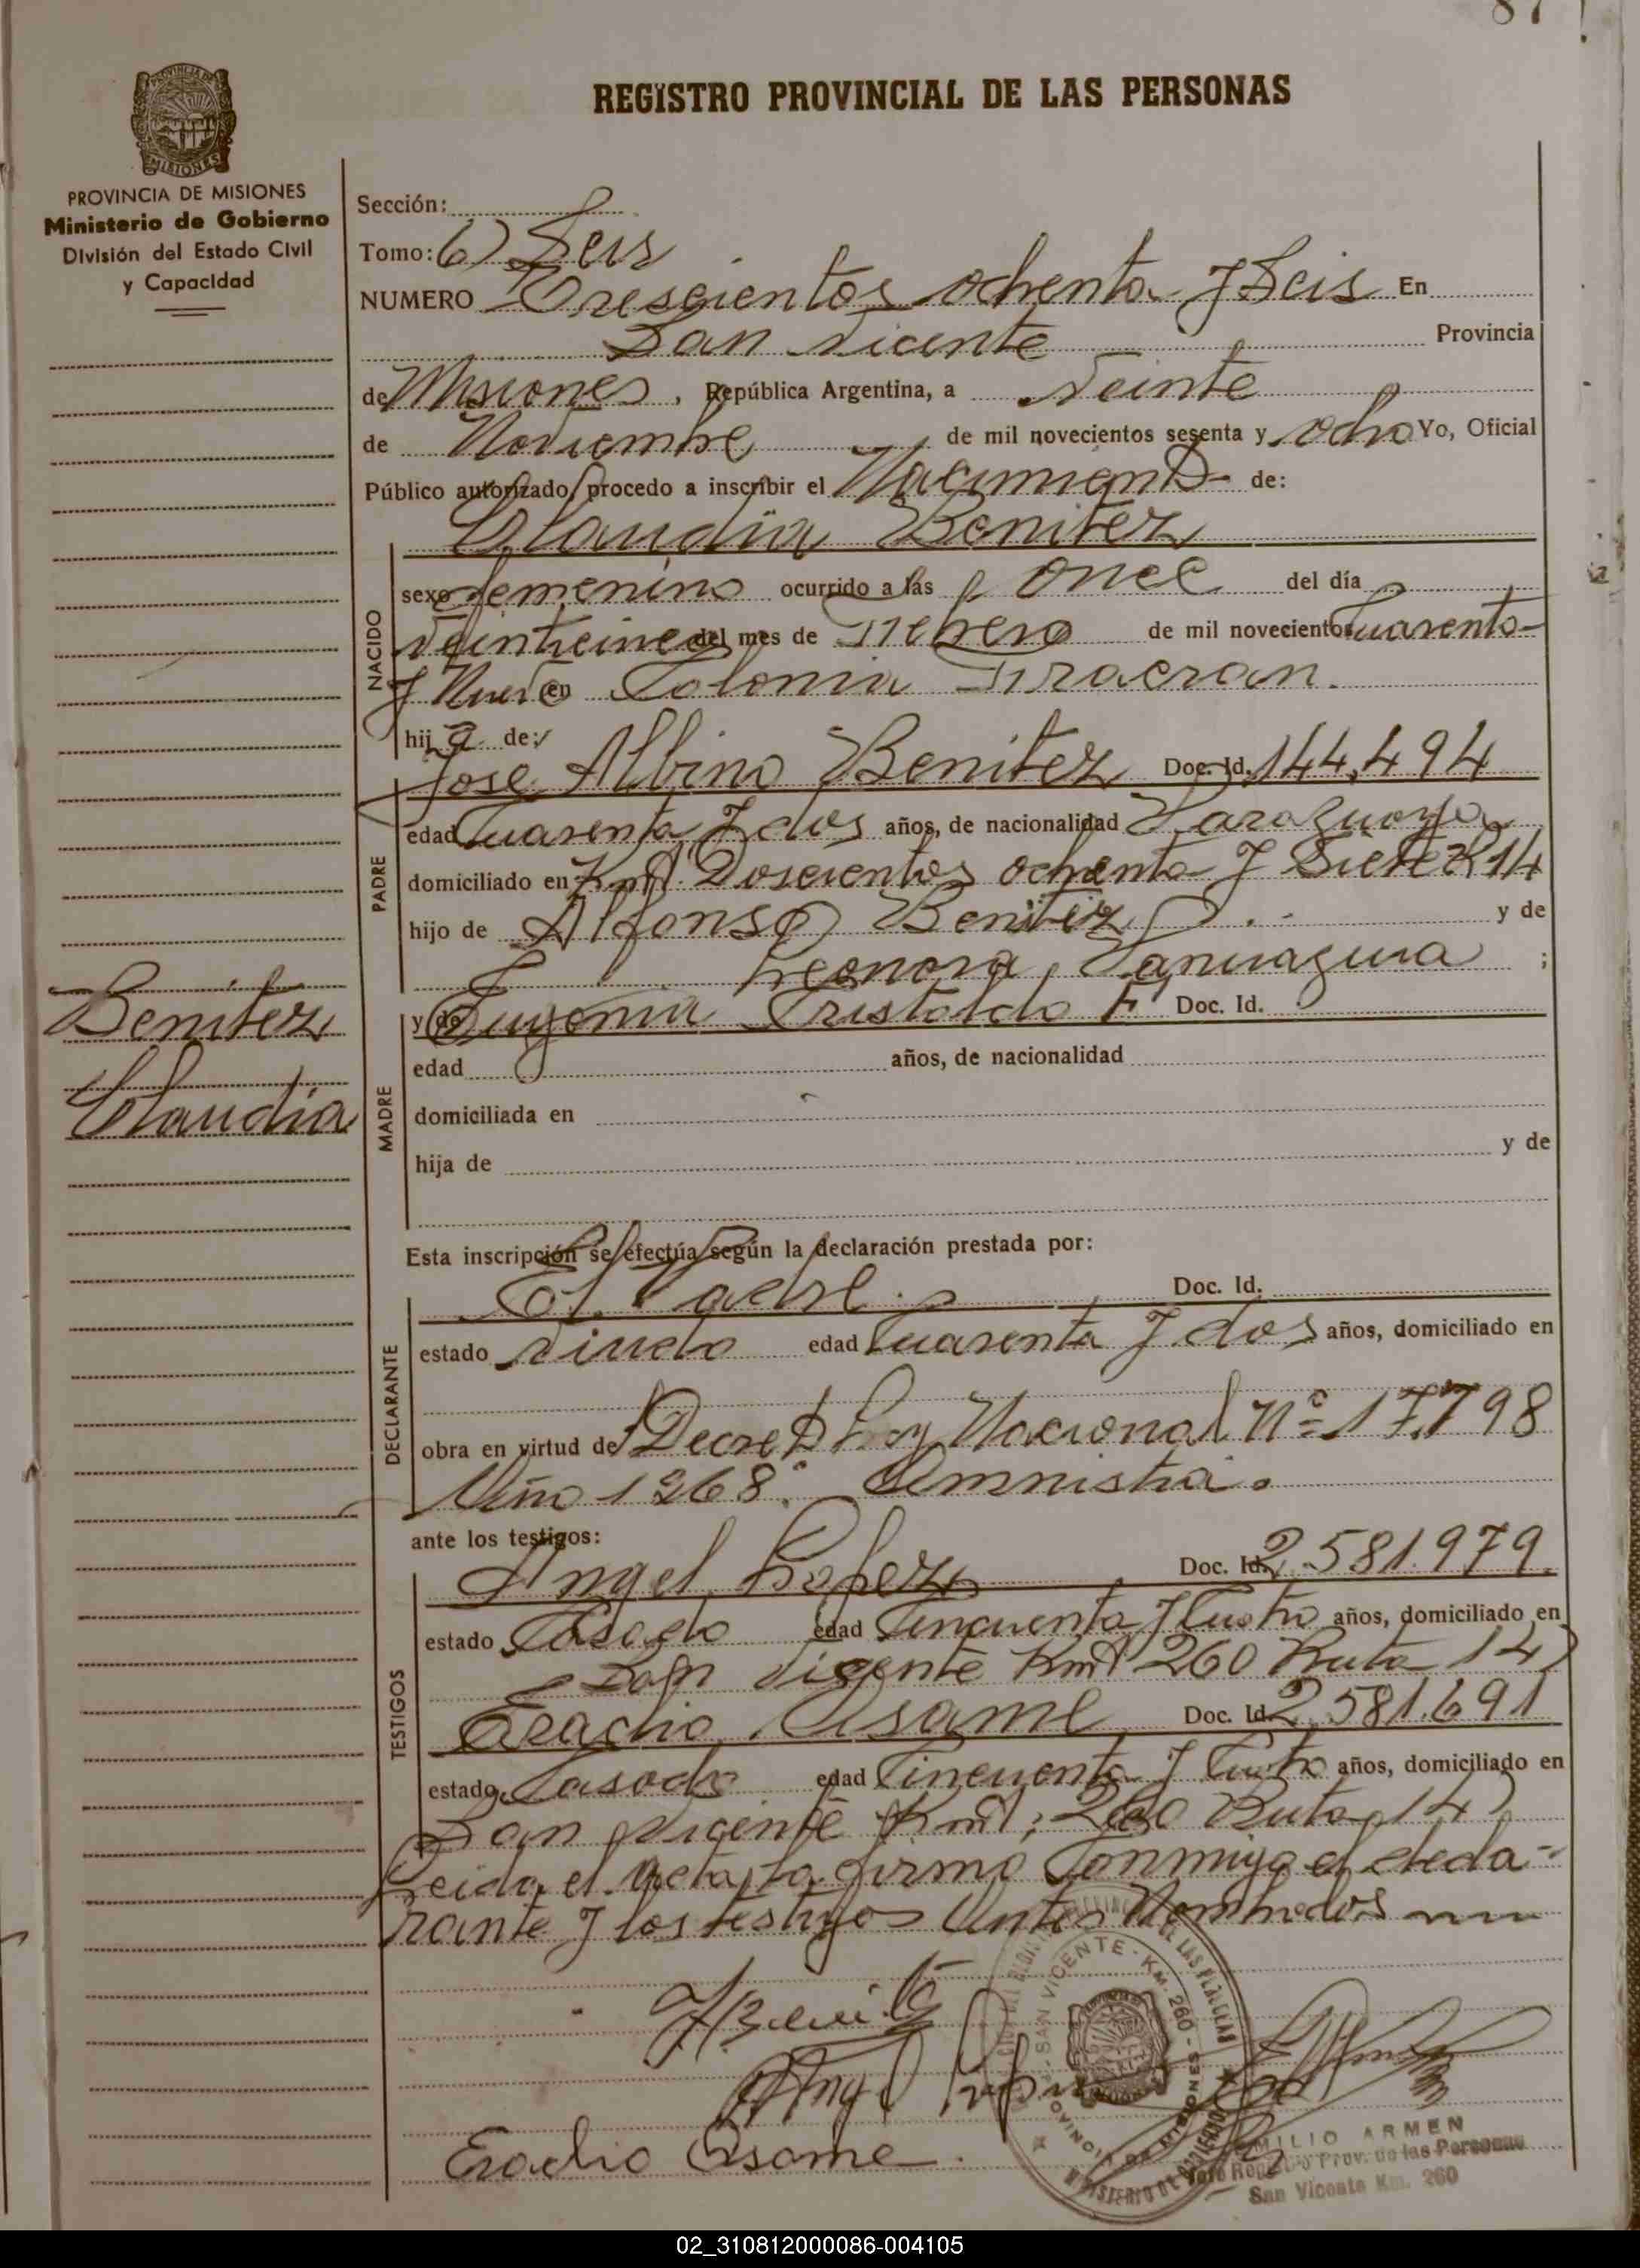 87
REGISTRO PROVINCIAL DE LAS PERSONAS
PROVINCIA DE MISIONES
Ministerio de Gobierno
División del Estado Civil
y Capacidad
Sección:
Tomo: 6) Seis
NUMERO Trescientos ochenta y Seis En
San Vicente Provincia
de Misiones, República Argentina, a veinte
de Noviembre de mil novecientos sesenta y ocho Yo, Oficial
Público autorizado, procedo a inscribir el Nacimiento de:
Claudia Benitez
NACIDO
sexo femenino ocurrido a las once del día
veinticinco del mes de Febrero de mil novecientos Cuarenta
y Nueve en Colonia Tiracran.
hija de:
PADRE
Jose Albino Benitez Doc. Id. 144,494
edad Cuarenta y dos años, de nacionalidad Paraguaya
domiciliado en Doscientos ochenta y Siete R 14
hijo de Alfonso Benitez y de
Leonora ;
MADRE
y de Eugenia Cristaldo F Doc. Id.
edad años, de nacionalidad
domiciliada en
hija de y de
Benitez
Claudia
Esta inscripción se efectúa según la declaración prestada por:
DECLARANTE
El Padre. Doc. Id.
estado viudo edad Cuarenta y dos años, domiciliado en
obra en virtud de Decreto Ley Nacional Nº 17.798
Año 1968. Amnistia.
ante los testigos:
TESTIGOS
Angel Lopez Doc. Id. 2.581.979.
estado Casado edad Cincuenta y Cuatro años, domiciliado en
San Vicente Km 260 Ruta 14)
Eradio Doc. Id. 2.581.691
estado Casado edad Cincuenta y Cuatro años, domiciliado en
San Vicente Km; 260 Ruta 14)
Leida el Acta, la firma Conmigo el decla-
rante y los testigos Antes Nombrados
SAN VICENTE - KM. 260 - MISIONES
EMILIO ARMEN
Jefe Registro Prov. de las Personas
San Vicente Km. 260
02_310812000086-004105